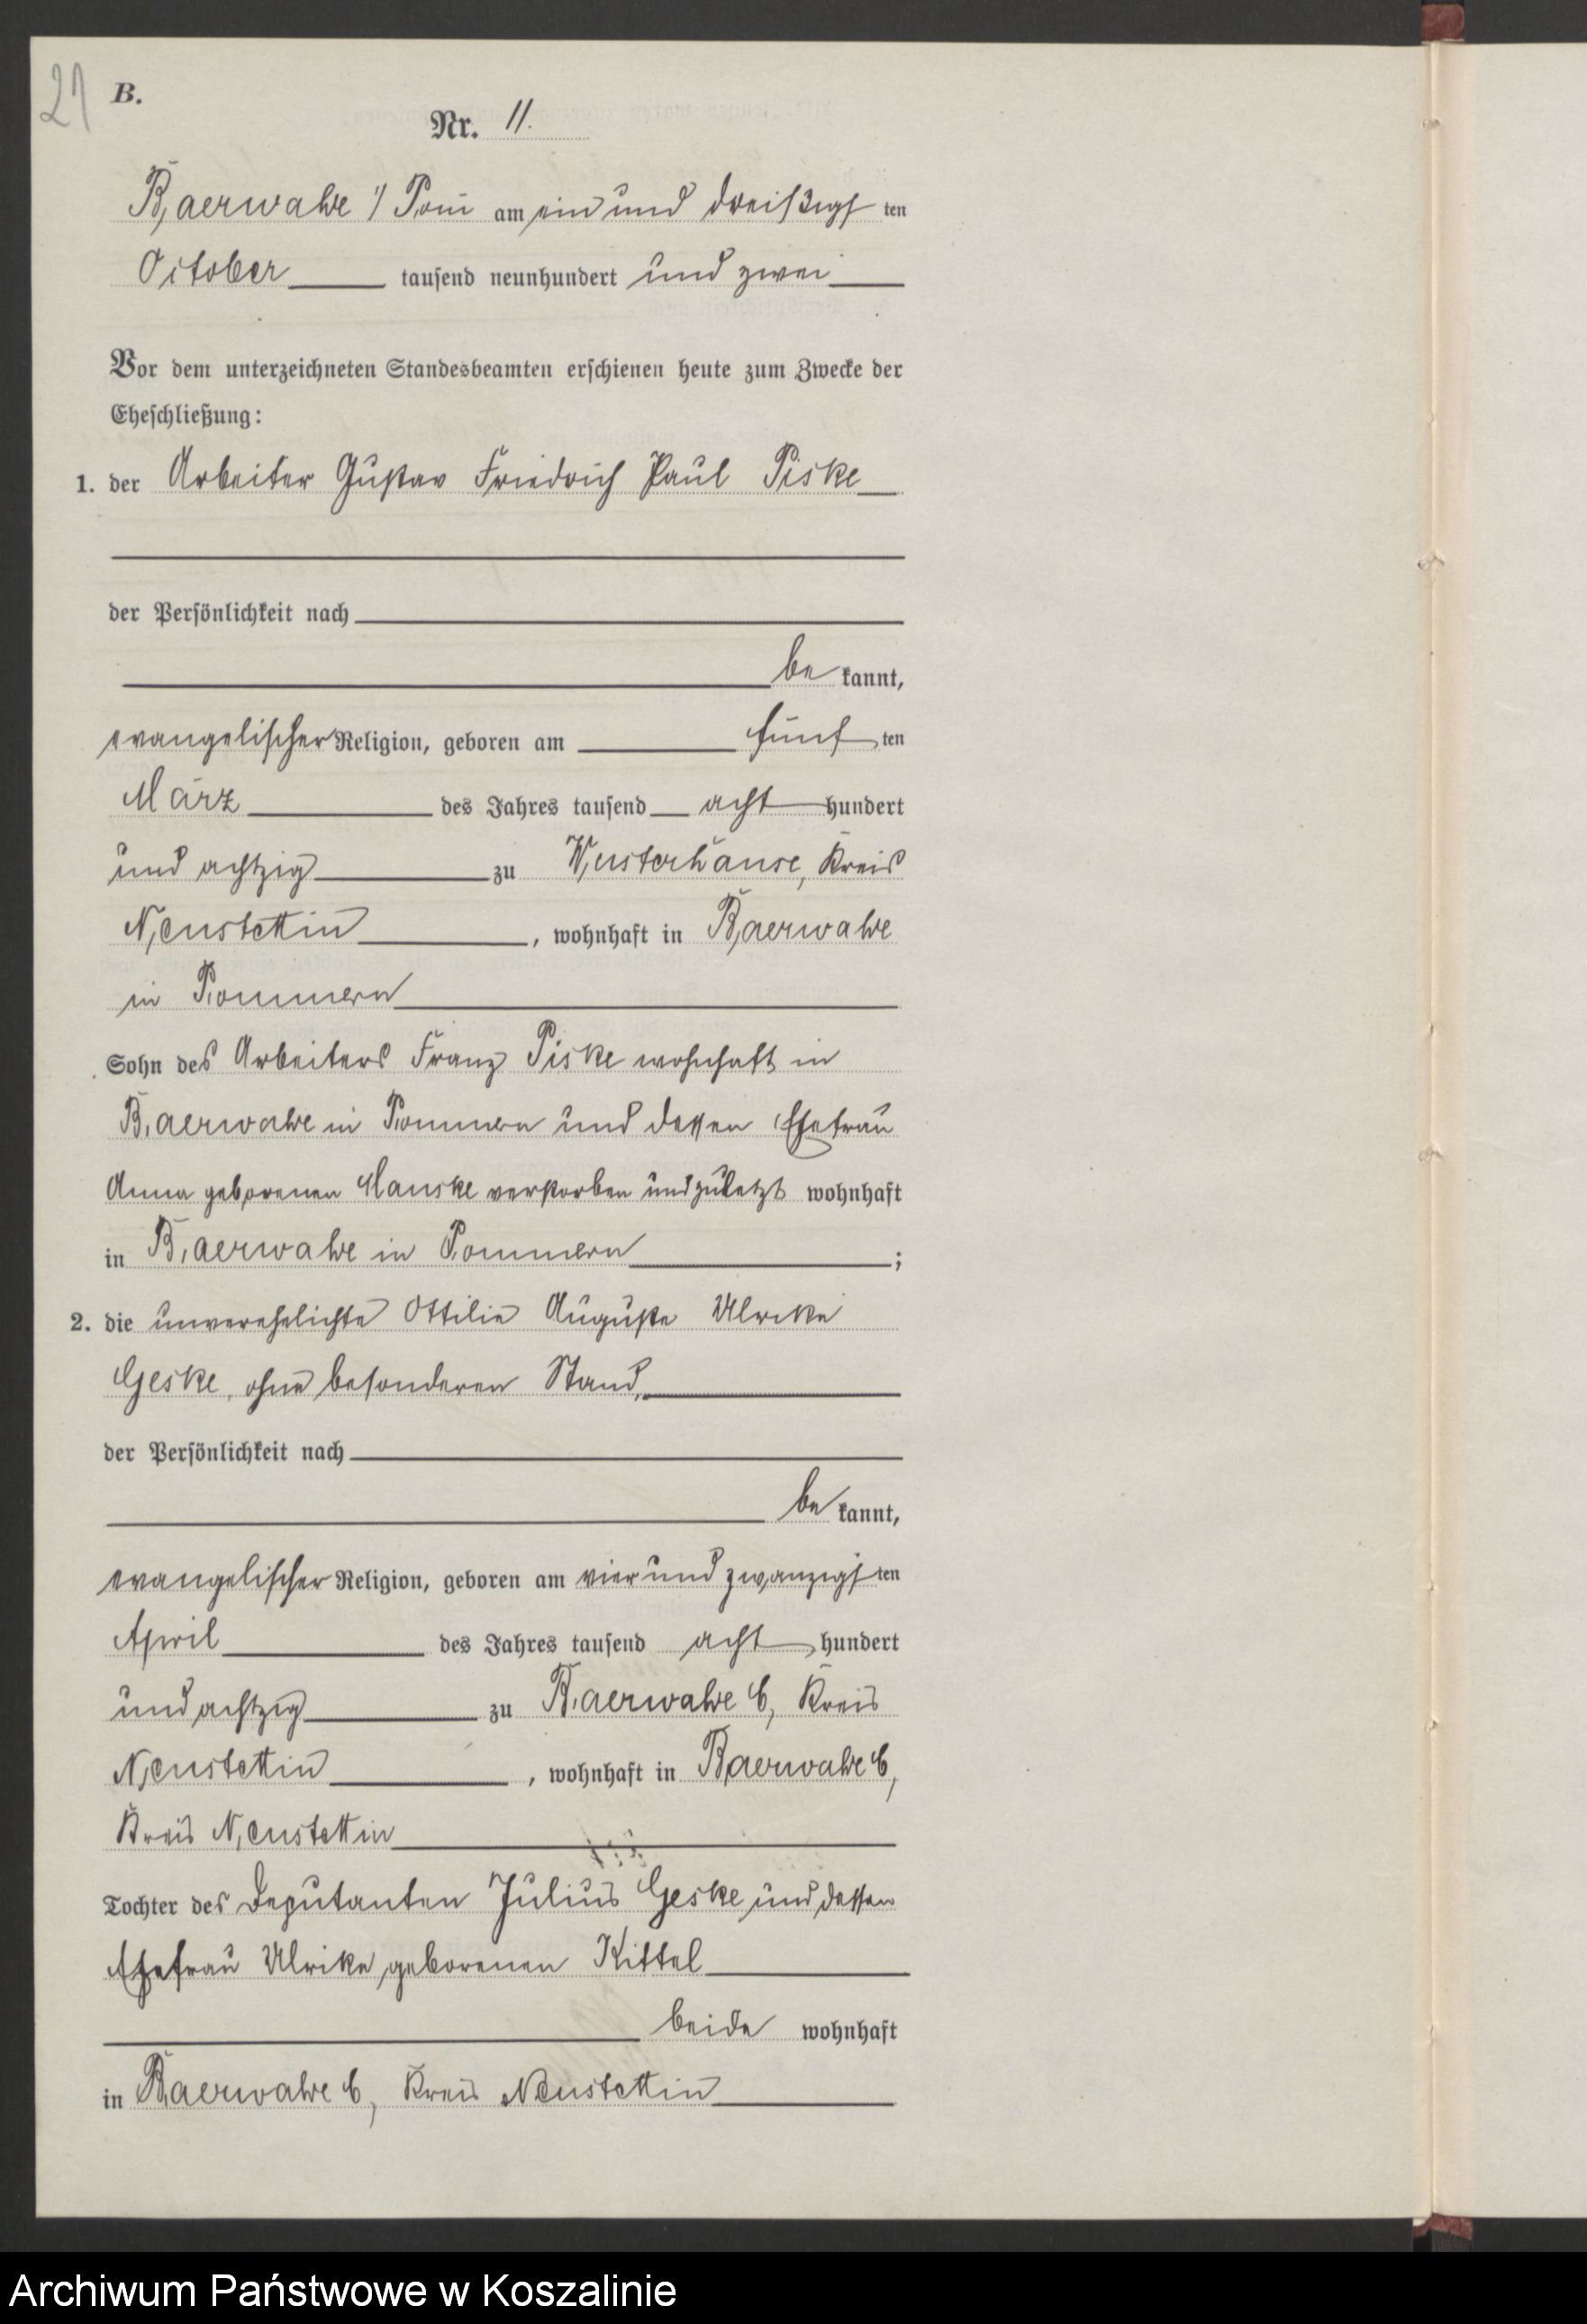 21
B.
Nr. 11.
Baerwalde i/Pom am ein und dreißigsten
October tausend neunhundert und zwei
Vor dem unterzeichneten Standesbeamten erschienen heute zum Zwecke der
Eheschließung:
1. der Arbeiter Gustav Friedrich Paul Piske
der Persönlichkeit nach
be kannt,
evangelischer Religion, geboren am fünf ten
März des Jahres tausend acht hundert
und achtzig zu Wusterhanse, Kreis
Neustettin, wohnhaft in Baerwalde
in Pommern
Sohn des Arbeiters Franz Piske wohnhaft in
Baerwalde in Pommern und dessen Ehefrau
Anna geborenen Manske verstorben und zuletzt wohnhaft
in Baerwalde in Pommern;
2. die unverehelichte Ottilie Auguste Ulrike
Geske, ohne besonderen Stand,
der Persönlichkeit nach
be kannt,
evangelischer Religion, geboren am vier und zwanzigsten
April des Jahres tausend acht hundert
und achtzig zu Baerwalde C, Kreis
Neustettin, wohnhaft in Baerwalde C,
Kreis Neustettin
Tochter des Deputanten Julius Geske und dessen
Ehefrau Ulrike geborenen Kittel
beide wohnhaft
in Baerwalde C, Kreis Neustettin
Archiwum Państwowe w Koszalinie